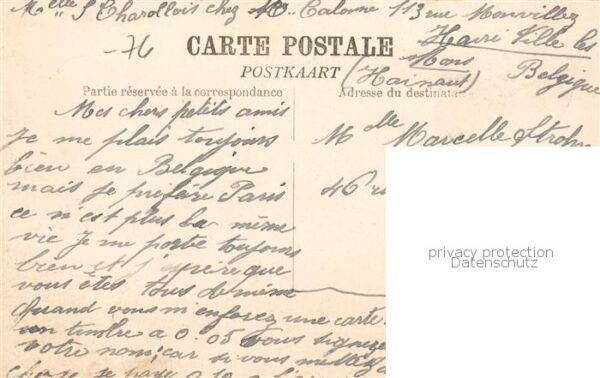 Melle S Charollois chez Mr. Calonne 113 rue
Havré Ville les
Mons
(Hainaut)
Belgique
-76
CARTE POSTALE
POSTKAART
Partie réservée à la correspondance
Adresse du destinata
Mes chers petits amis
Je me plais toujours
bien en Belgique
mais je préfère Paris
ce n'est plus la même
vie Je me porte toujours
bien et j'espère que
vous êtes tous de même
Quand vous m'enforez une carte
un timbre a 0.05 vous signerez
votre nom, car si vous mettez
chose je paye
Melle Marcelle Strohm
46 ru
privacy protection
Datenschutz